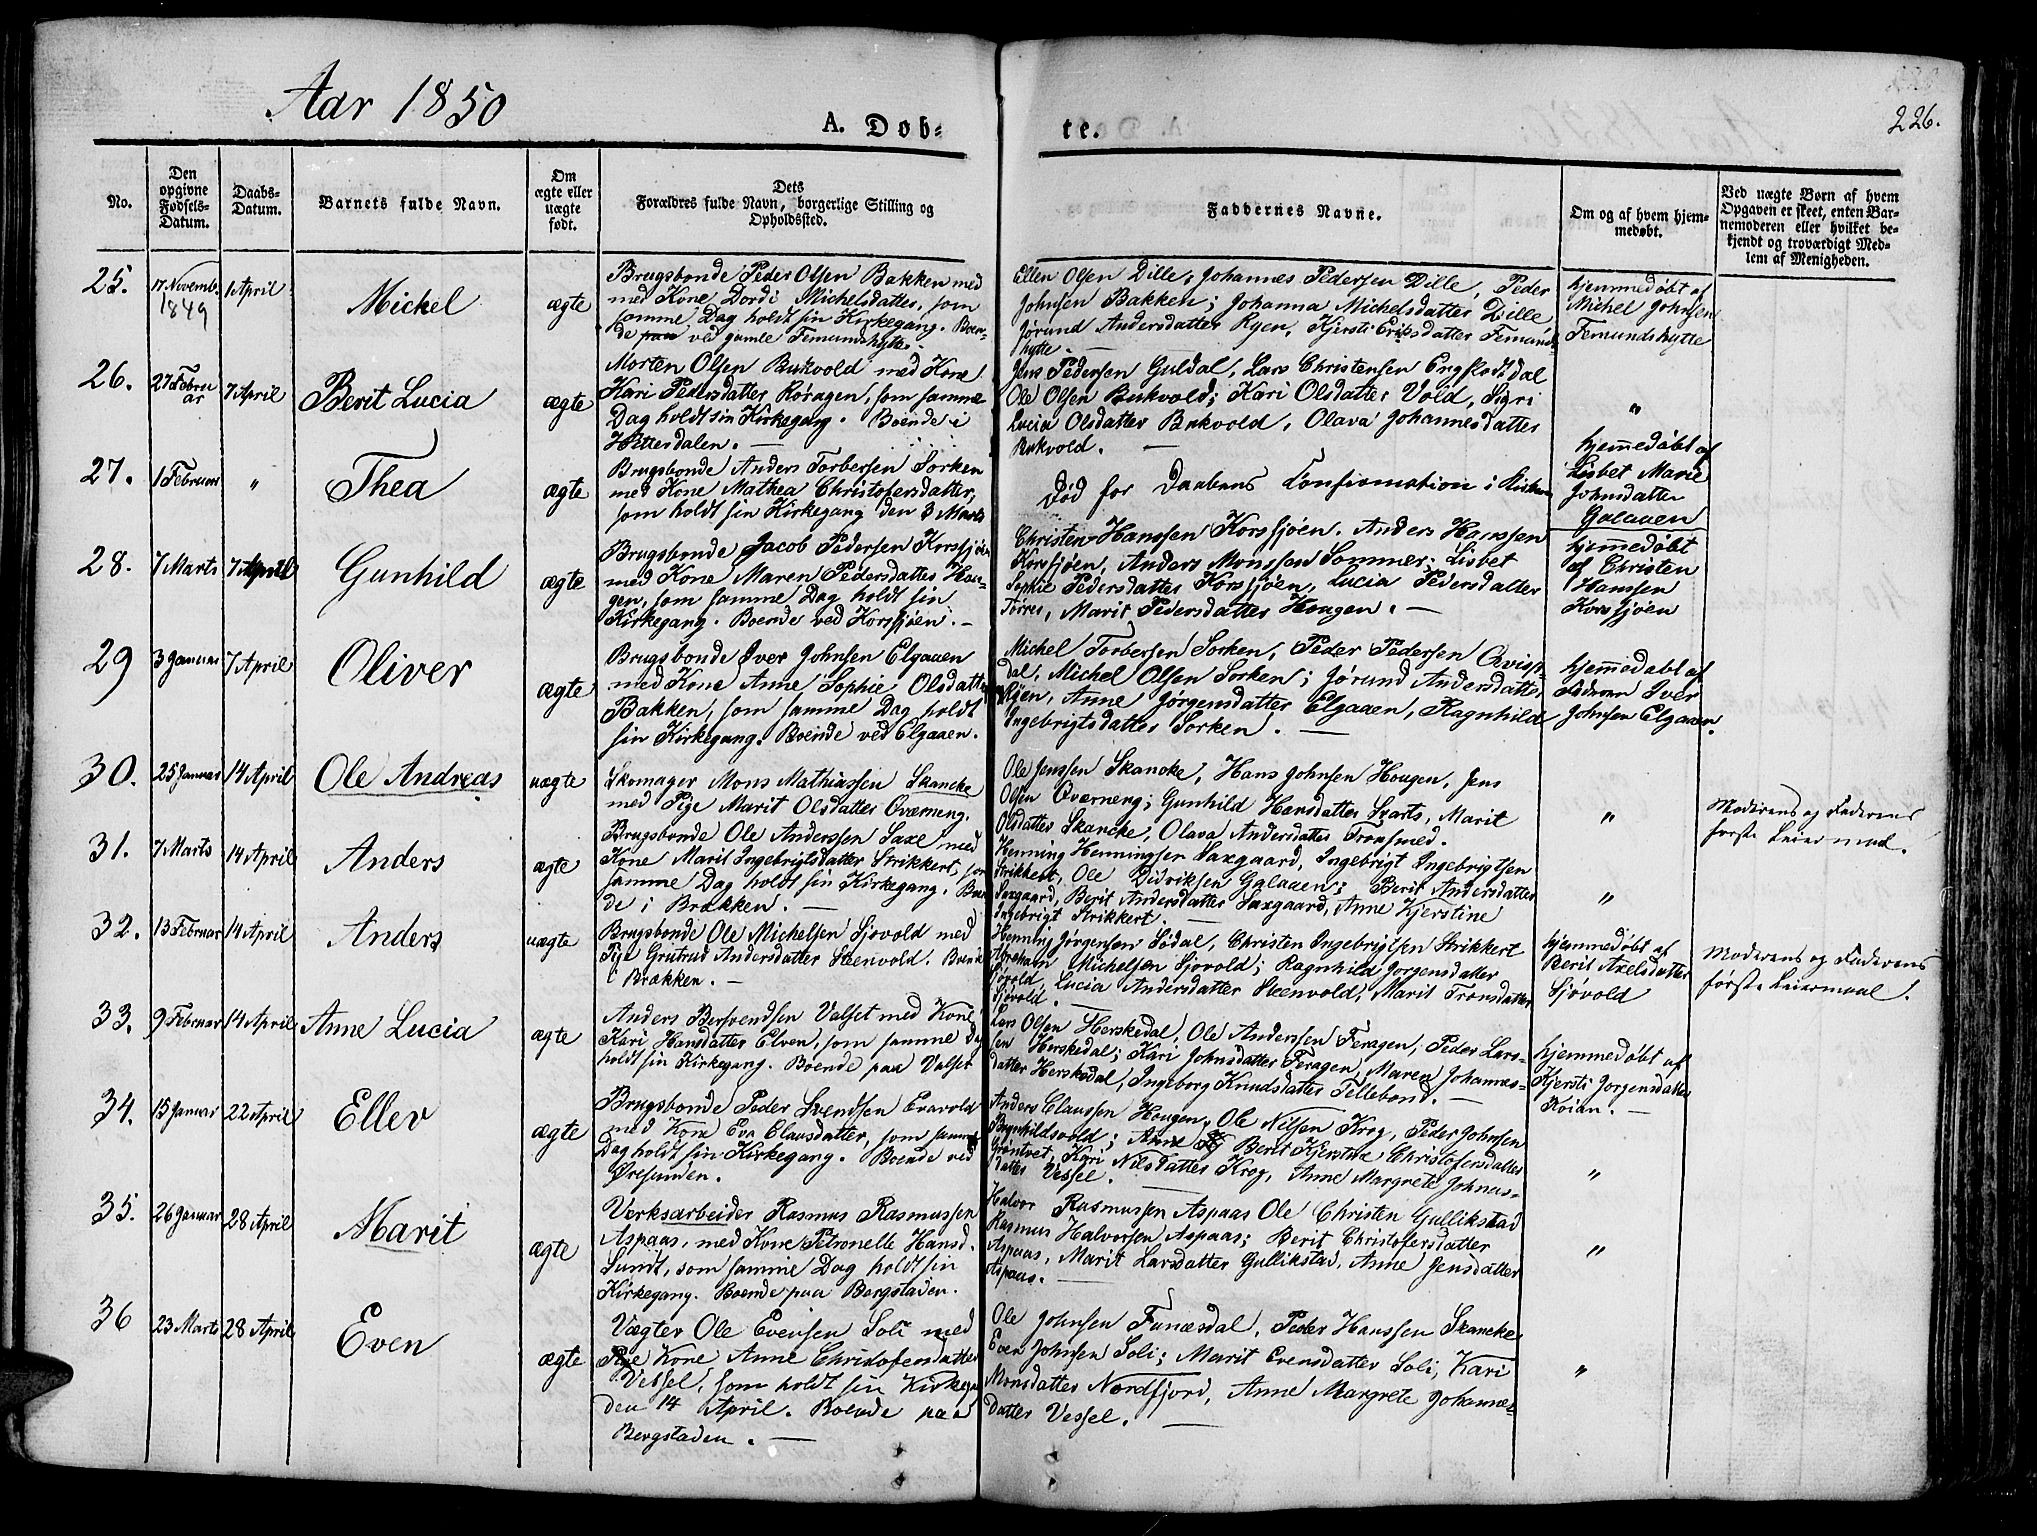 Aar 1850
A. Døb-
te.
226.
No.
Den
opgivne
Fødsels-
Datum.
Daabs-
Datum.
Barnets fulde Navn.
Om
ægte eller
uægte
født.
Dets
Forældres fulde Navn, borgerlige Stilling og
Opholdssted.
Faddernes Navne.
Om og af hvem hjem-
medøbt.
Ved uægte Børn af hvem
Opgaven er skeet, enten Bar-
nemoderen eller hvilket be-
kjendt og troværdigt Med-
lem af Menigheden.
25.
17 Novemb.
1849
1 April
Mickel
ægte
Brugsbonde Peder Olsen Bakken med
med Kone Dordi Michelsdatter, som
samme Dag holdt sin Kirkegang. Boen-
de paa ved gamle Femundshytte.
Ellen Olsen Dille, Johannes Pedersen Dille, Peder
Johnsen Bakken; Johanna Michelsdatter Dille
Jørund Andersdatter Ryen, Kjersti Eriksdatter Femunds
hytte. —
hjemmedøbt af
Michel Johnsen
Femundshytte
26.
27 Febru
ar
7 April
Berit Lucia
ægte
Morten Olsen Bukvold med Kone
Kari Pedersdatter Røragen, som samme
Dag holdt sin Kirkegang. Boende i
Hitterdalen. —
Jens Pedersen Guldal, Lars Christensen Engslodtdal
Ole Olsen Bukvold; Kari Olsdatter Vold, Sigri
Lucia Olsdatter Bukvold, Olava Johannesdatter
Bukvold. —
"
27.
1 Februar
"
Thea
ægte
Brugsbonde Anders Torbersen Sorken
med Kone Mathea Christofersdatter,
som holdt sin Kirkegang den 3 Marts
Død før Daabens Confirmation i Kirken
hjemedøbt af
Lisbet Marie
Johnsdatter
Galaaen
28.
7 Marts
7 April
Gunhild
ægte
Brugsbonde Jacob Pedersen Korssjøen
med Kone Maren Pedersdatter Hou-
gen, som samme Dag holdt sin
Kirkegang. Boende ved Korssjøen. —
Christen Hanssen Korssjøen. Anders Hanssen
Korssjøen, Anders Monssen Sommer; Lisbet
Sophie Pedersdatter Korssjøen, Lucia Pedersdatter
Torres, Marit Pedersdatter Hougen. —
hjemedøbt
af Christen
Hanssen
Korssjøen
29
3 Januar
7 April
Oliver
ægte
Brugsbonde Iver Johnsen Elgaaen
med Kone Anne Sophie Olsdatter
Bakken, som samme Dag holdt
sin Kirkegang. Boende ved Elgaaen.
Michel Torbersen Sorken, Peder Pedersen Qvisp-
dal, Michel Olsen Sorken; Jørund Andersdatter
Ryen, Anne Jørgensdatter Elgaaen, Ragnhild
Ingebrigtsdatter Sorken. —
hjemmedøbt af
Faderen Iver
Johnsen Elgaaen.
30.
25 Januar
14 April
Ole Andreas
uægte
Skomager Mons Mathiassen Skancke
med Pige Marit Olsdatter Qværneng.
Ole Jenssen Skancke, Hans Johnsen Hougen, Jens
Olsen Qværneng; Gunhild Hansdatter Skarts, Marit
Olsdatter Skancke, Olava Andersdatter Tronsmed.
"
Moderens og Faderens
første Leiermaal.
31.
7 Marts
14 April
Anders
ægte
Brugsbonde Ole Anderssen Saxe med
Kone Marit Ingebrigtsdatter Strikkert, som
samme Dag holdt sin Kirkegang. Boen
de i Brækken. —
Henning Henningsen Saxgaard, Ingebrigt Ingebrigtsen
Strikkert, Ole Didriksen Galaaen; Berit Andersdatter
Saxgaard, Berit Andersdatter Saxgaard, Anne Kjerstine
Ingebrigt Strikkert. —
"
32.
13 Februar
14 April
Anders
uægte
Brugsbonde Ole Michelsen Sjøvold med
Pige Grutrud Andersdatter Steenvold. Boende
i Brækken. —
Henning Jørgensen Sødal, Christen Ingebrigtsen Strikkert
Abraham Michelsen Sjøvold; Ragnhild Jørgensdatter
Sjøvold, Lucia Andersdatter Steenvold, Marit Tronsdatter
Sjøvold.
hjemmedøbt af
Berit Axelsdatter
Sjøvold
Moderens og Faderens
første Leiermaal.
33.
9 Februar
14 April
Anne Lucia
ægte
Anders Bersvendsen Valset med Kone
Kari Hansdatter Elven, som samme Dag
holdt sin Kirkegang. Boende paa Valset
Lars Olsen Herskedal, Ole Anderssen Feragen, Peder Lars-
sen Herskedal; Kari Johnsdatter Feragen, Maren Johannes-
datter Herskedal, Ingeborg Knudsdatter Tellebond. —
hjemmedøbt af
Kjersti Jørgensdatter
Koian. —
34.
15 Januar
22 April
Ellev
ægte
Brugsbonde Peder Svendsen Evavold
med Kone Eva Clausdatter, som samme
Dag holdt sin Kirkegang. Boende ved
Øresunden.
Anders Claussen Hougen, Ole Nilsen Krog, Peder Johnsen
Bagnhildsvold; Anne Berit Kjerstine Christofersdatter
Grøntvet, Kari Nilsdatter Krog, Anne Margrete Johnes-
datter Vessel. —
"
35.
26 Januar
28 April
Marit
ægte
Verksarbeider Rasmus Rasmussen
Aspaas, med Kone Petronelle Hansd.
Sundt, som samme Dag holdt sin
Kirkegang. Boende paa Bergstaden.
Halvor Rasmussen Aspaas Ole Christen Gullikstad
Rasmus Halvorsen Aspaas; Berit Christofersdatter
Aspaas, Marit Larsdatter Gullikstad, Anne Jensdatter
Aspaas. —
"
36
23 Marts
28 April
Even
ægte
Vægter Ole Evensen Soli med
Pige Kone Anne Christofersdatter
Vessel, som holdt sin Kirkegang
den 14 April. Boende paa
Bergstaden. —
Ole Johnsen Funæsdal, Peder Hanssen Skancke
Even Johnsen Soli; Marit Evensdatter Soli, Kari
Monsdatter Nordfjord, Anne Margrete Johannes-
datter Vessel. —
"